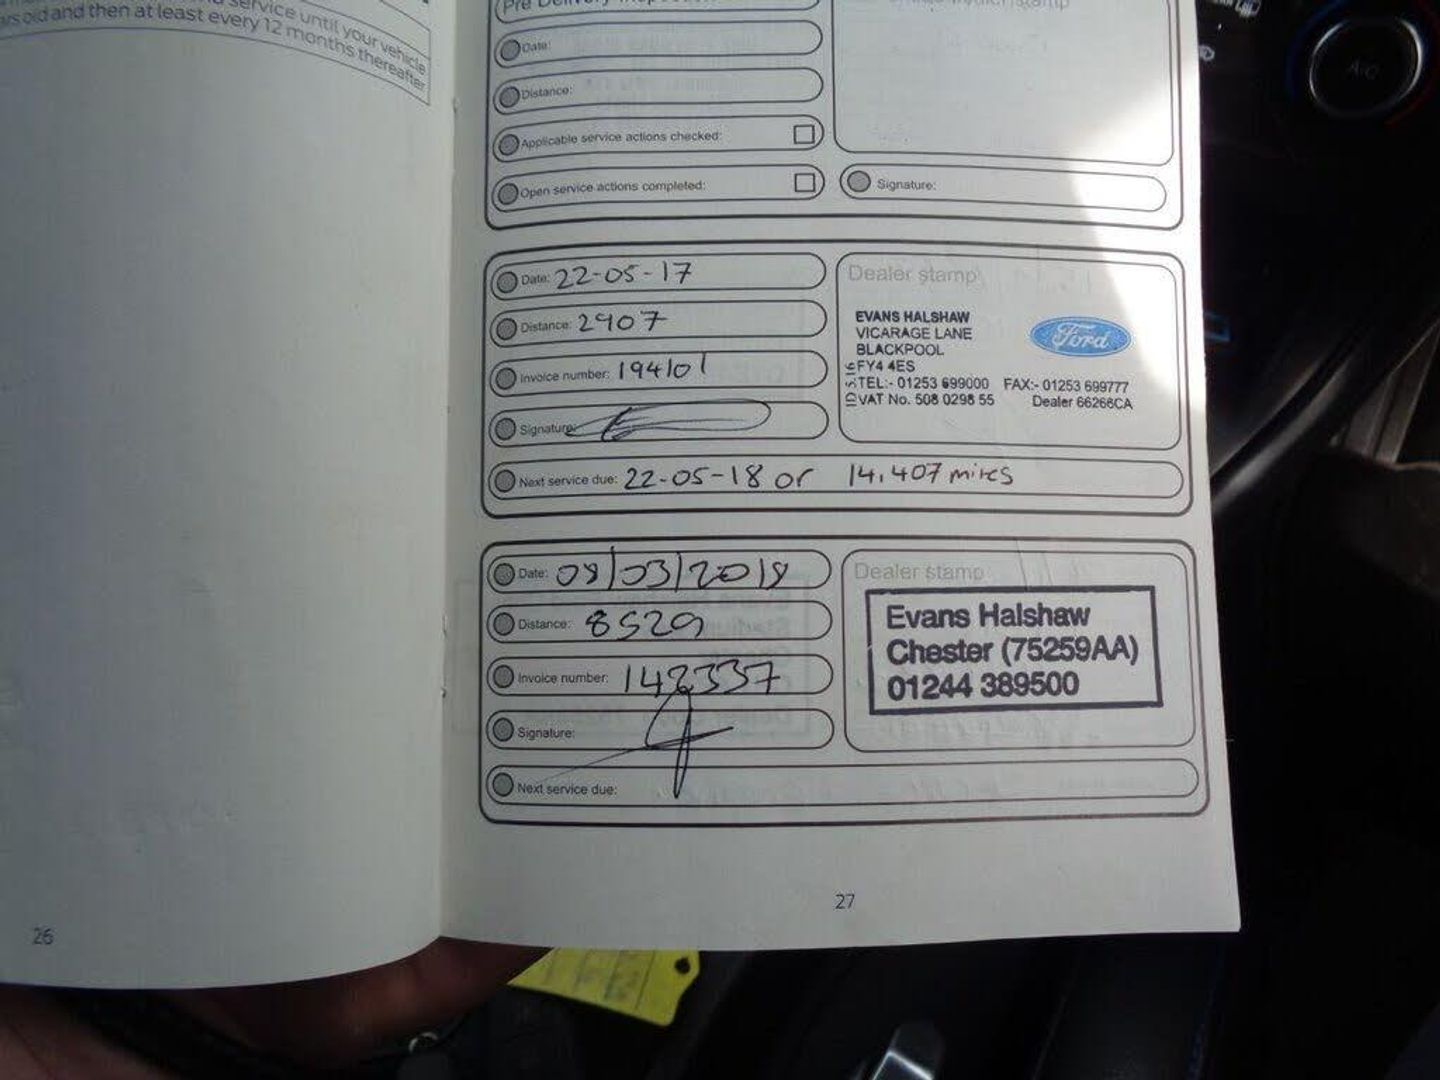 service until your vehicle
old and then at least every 12 months thereafter
26
Pre Delivery Inspection
Date:
Distance:
Applicable service actions checked:
Open service actions completed:
Signature:
Date: 22-05-17
Distance: 2907
Invoice number: 194101
Signature:
Next service due: 22-05-18 or 14,407 miles
Dealer stamp
EVANS HALSHAW
VICARAGE LANE
BLACKPOOL
FY4 4ES
TEL:- 01253 699000 FAX:- 01253 699777
VAT No. 508 0298 55 Dealer 66266CA
Ford
Date: 08/03/2018
Distance: 8529
Invoice number: 142337
Signature:
Next service due:
Dealer stamp
Evans Halshaw
Chester (75259AA)
01244 389500
27
A/C